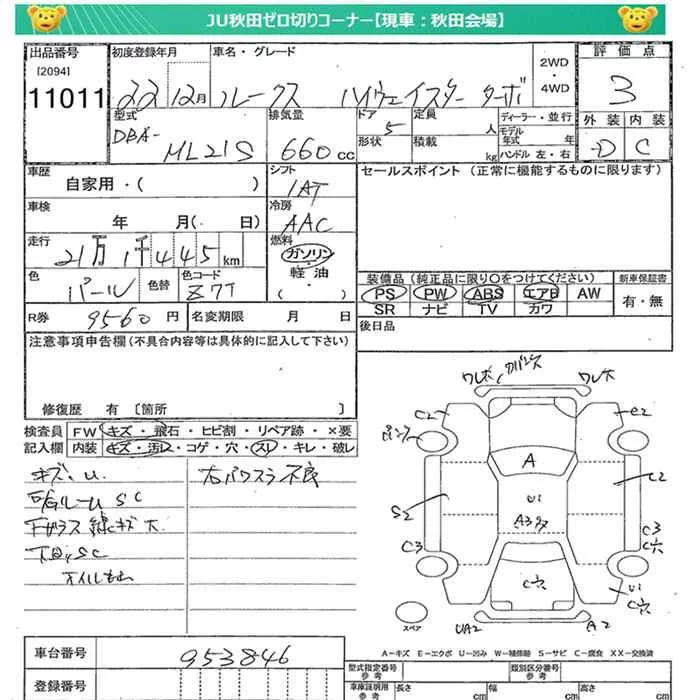 JU秋田ゼロ切りコーナー【現車：秋田会場】
出品番号 初度登録年月 車名・グレード 2WD・4WD 評価点
[2094]
11011 22 12月 ルークス ハイウェイスター ターボ 3
型式 排気量 ドア 定員 ディーラー・並行 外装 内装
DBA-ML21S 660cc 5 人 モデル年式 年 D C
形状 積載 kg ハンドル 左・右
車歴 シフト セールスポイント (正常に機能するものに限ります)
自家用・( ) IAT
車検 冷房
年 月( 日) AAC
走行 燃料
21万1千445km ガソリン
色 色替 色コード 軽油
パール Z7T ・( )
装備品 (純正品に限り○をつけてください) 新車保証書
PS PW ABS エアB AW 有・無
SR ナビ TV カワ
R券 9560円 名変期限 月 日 後日品
注意事項申告欄(不具合内容等は具体的に記入して下さい)
修復歴 有 [箇所 ]
検査員 FW キズ・飛石・ヒビ割・リペア跡・×要
記入欄 内装 キズ・汚レ・コゲ・穴・スレ・キレ・破レ
キズ・U. 右パワスラ不良
SC
Fガラス 線キズ大
下回りSC
オイルもれ
ワレ大 ワレ大
C2 C2
A
U1
S2 A3 C2
C3 C3
C穴
C穴 U1
C穴
スペア UA2 A2
A-キズ E-エクボ U-凹み W-補修跡 S-サビ C-腐食 XX-交換済
車台番号 953846
型式指定番号 参考 類別区分番号 参考
登録番号 車庫証明用 参考 長さ cm 幅 cm 高さ cm